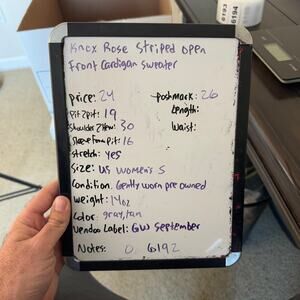 6194
Knox Rose Striped Open
Front Cardigan Sweater
price: 24 poshmark: 26
Pit 2 pit: 19 Length:
Shoulder 2 Hem: 30 Waist:
Sleeve From pit: 16
stretch: yes
Size: US Women's S
Condition: Gently worn pre owned
Weight: 14oz
Color: gray, tan
Vendoo Label: GW September
Notes: 0 6192